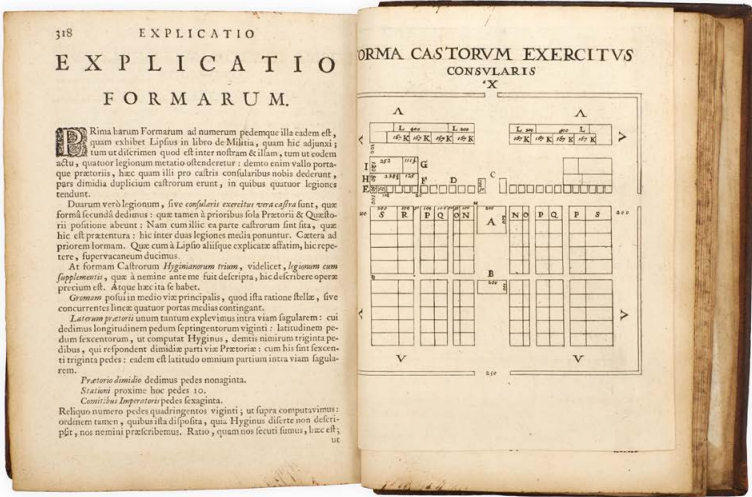 318 EXPLICATIO
EXPLICATIO
FORMARUM.
PRima harum Formarum ad numerum pedemque illa eadem est,
quam exhibet Lipsius in libro de Militia, quam hic adjunxi;
tum ut discrimen quod est inter nostram & illam, tum ut eodem
actu, quatuor legionum metatio ostenderetur: demto enim vallo porta-
que prætoriis, hæc quam illi pro castris consularibus nobis dederunt,
pars dimidia duplicium castrorum erunt, in quibus quatuor legiones
tendunt.
Duarum verò legionum, sive consularis exercitus vera castra sunt, quæ
formâ secundâ dedimus: quæ tamen à prioribus sola Prætorii & Quæsto-
rii positione abeunt: Nam cum illic ea parte castrorum sint sita, quæ
hic est prætentura: hic inter duas legiones media ponuntur. Cætera ad
priorem formam. Quæ cum à Lipsio aliisque explicatæ affatim, hic repe-
tere, supervacaneum ducimus.
At formam Castrorum Hyginianorum trium, videlicet, legionum cum
supplementis, quæ à nemine ante me fuit descripta, hic describere operæ
precium est. Atque hæc ita se habet.
Gromam posui in medio viæ principalis, quod ista ratione stellæ, sive
concurrentes lineæ quatuor portas medias contingant.
Laterum prætorii unum tantum explevimus intra viam sagularem: cui
dedimus longitudinem pedum septingentorum viginti: latitudinem pe-
dum sexcentorum, ut computat Hyginus, demtis nimirum triginta pe-
dibus, qui respondent dimidiæ parti viæ Prætoriæ: cum his sint sexcen-
ti triginta pedes: eadem est latitudo omnium partium intra viam sagula-
rem.
Prætorio dimidio dedimus pedes nonaginta.
Stationi proxime hoc pedes 10.
Comitibus Imperatoris pedes sexaginta.
Reliquo numero pedes quadringentos viginti; ut supra computavimus:
ordinem tamen, quibus ista disposita, quia Hyginus diserte non descri-
psit, nos nemini præscribemus. Ratio, quam nos secuti sumus, hæc est;
ut
ORMA CASTORVM EXERCITVS
CONSVLARIS
X
V V
L 400 L 200 L 200 L 400
K K K K K K K K
I 252 G
H F D C
E
S R P Q O N A N O P Q P S 200
B
V V
250